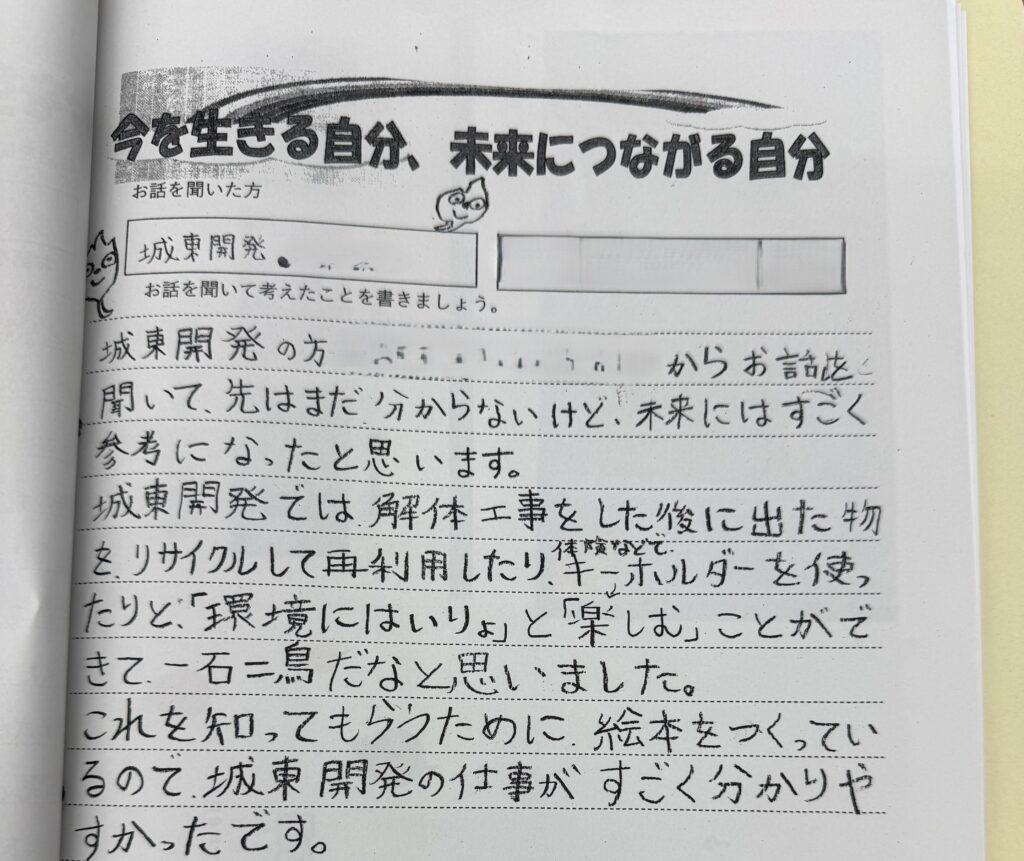 今を生きる自分、未来につながる自分
お話を聞いた方
城東開発
お話を聞いて考えたことを書きましょう。
城東開発の方 からお話を
聞いて、先はまだ分からないけど、未来にはすごく
参考になったと思います。
城東開発では、解体工事をした後に出た物
を、リサイクルして再利用したり、キーホルダーを使っ
体験などで
たりと、「環境にはいりょ」と「楽しむ」ことがで
きて、一石二鳥だなと思いました。
これを知ってもらうために、絵本をつくってい
るので、城東開発の仕事がすごく分かりや
すかったです。